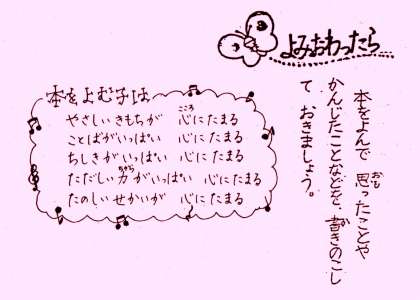 よみおわったら
本をよんで 思ったことや
かんじたことなどを、書きのこし
て おきましょう。
本をよむ子は
やさしいきもちが 心にたまる
ことばがいっぱい 心にたまる
ちしきがいっぱい 心にたまる
ただしい力がいっぱい 心にたまる
たのしいせかいが 心にたまる